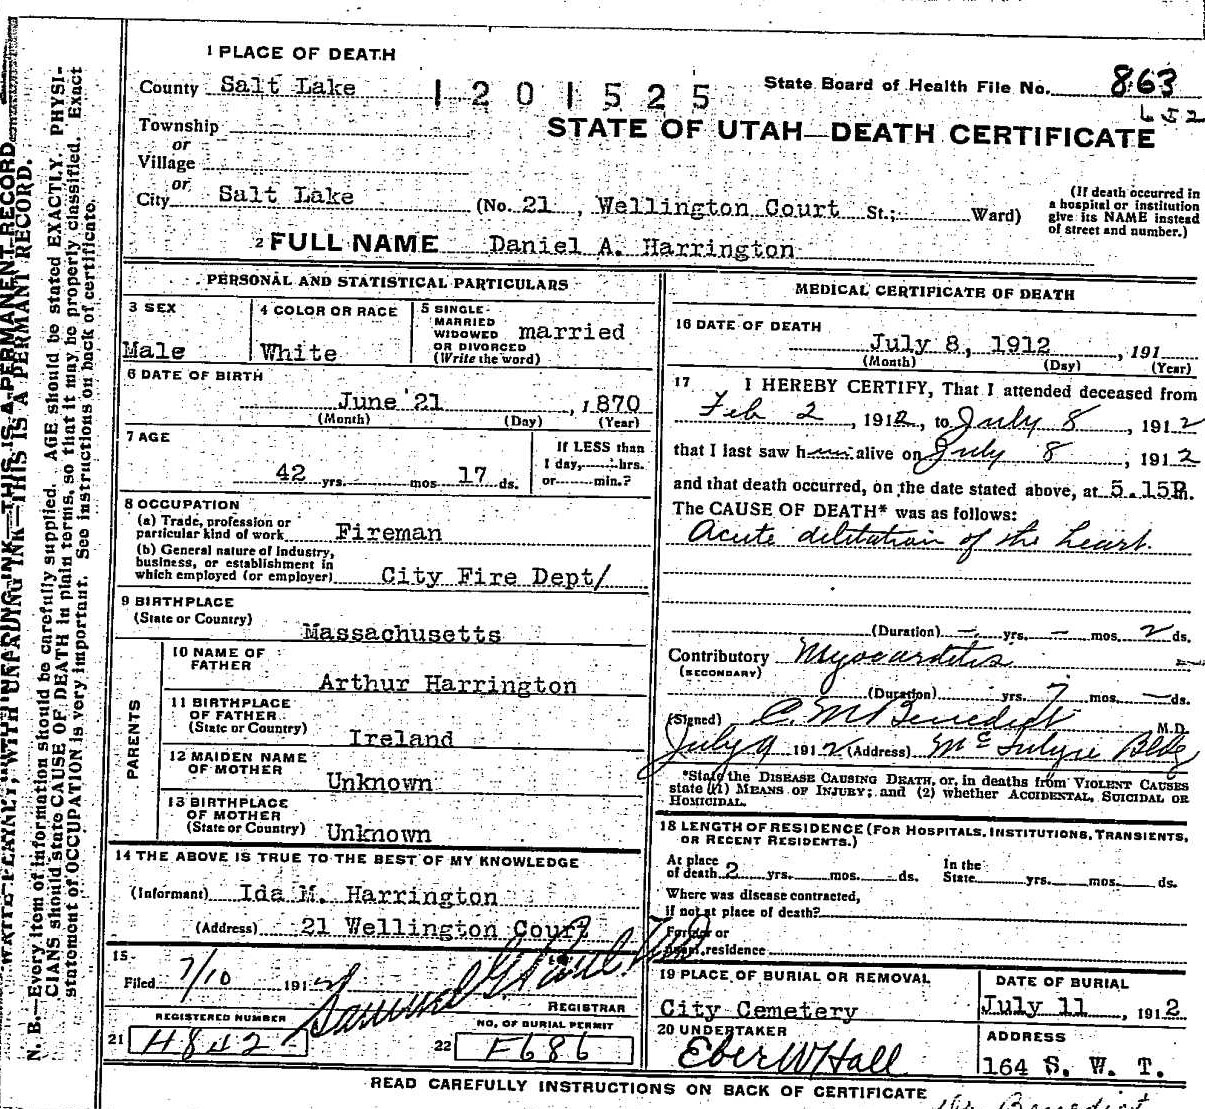 1 PLACE OF DEATH
County Salt Lake
1201525
State Board of Health File No. 863
652
STATE OF UTAH—DEATH CERTIFICATE
Township
or
Village
or
City Salt Lake (No. 21, Wellington Court St.; Ward)
(If death occurred in
a hospital or institution
give its NAME instead
of street and number.)
2 FULL NAME Daniel A. Harrington
PERSONAL AND STATISTICAL PARTICULARS
3 SEX
Male
4 COLOR OR RACE
White
5 SINGLE
MARRIED
WIDOWED
OR DIVORCED
(Write the word)
married
6 DATE OF BIRTH
June 21, 1870
(Month) (Day) (Year)
7 AGE
42 yrs. mos 17 ds.
If LESS than
1 day, hrs.
or min.?
8 OCCUPATION
(a) Trade, profession or
particular kind of work Fireman
(b) General nature of industry,
business, or establishment in
which employed (or employer) City Fire Dept/
9 BIRTHPLACE
(State or Country)
Massachusetts
PARENTS
10 NAME OF
FATHER
Arthur Harrington
11 BIRTHPLACE
OF FATHER
(State or Country)
Ireland
12 MAIDEN NAME
OF MOTHER
Unknown
13 BIRTHPLACE
OF MOTHER
(State or Country) Unknown
14 THE ABOVE IS TRUE TO THE BEST OF MY KNOWLEDGE
(Informant) Ida M. Harrington
(Address) 21 Wellington Court
15
Filed 7/10 1912
REGISTRAR
REGISTERED NUMBER
21 H842
NO. OF BURIAL PERMIT
22 F686
MEDICAL CERTIFICATE OF DEATH
16 DATE OF DEATH
July 8, 1912, 191
(Month) (Day) (Year)
17 I HEREBY CERTIFY, That I attended deceased from
Feb 2, 1912, to July 8, 1912
that I last saw him alive on July 8, 1912
and that death occurred, on the date stated above, at 5.15P.m.
The CAUSE OF DEATH* was as follows:
Acute dilitation of the heart.
(Duration) — yrs. — mos. 2 ds.
Contributory Myocarditis
(SECONDARY)
(Duration) yrs. 7 mos. — ds.
(Signed) C. M. Benedict M.D.
July 9 1912 (Address) McIntyre Bldg
*State the DISEASE CAUSING DEATH, or, in deaths from VIOLENT CAUSES
state (1) MEANS OF INJURY; and (2) whether ACCIDENTAL, SUICIDAL OR
HOMICIDAL.
18 LENGTH OF RESIDENCE (FOR HOSPITALS, INSTITUTIONS, TRANSIENTS,
OR RECENT RESIDENTS.)
At place
of death 2 yrs. mos. ds.
In the
State yrs. mos. ds.
Where was disease contracted,
if not at place of death?
Former or
usual residence
19 PLACE OF BURIAL OR REMOVAL
City Cemetery
DATE OF BURIAL
July 11, 1912
20 UNDERTAKER
Eber W Hall
ADDRESS
164 S. W. T.
READ CAREFULLY INSTRUCTIONS ON BACK OF CERTIFICATE
Benedict
WRITE PLAINLY, WITH UNFADING INK—THIS IS A PERMANENT RECORD.
N. B.—Every item of information should be carefully supplied. AGE should be stated EXACTLY. PHYSI-
CIANS should state CAUSE OF DEATH in plain terms, so that it may be properly classified. Exact
statement of OCCUPATION is very important. See instructions on back of certificate.